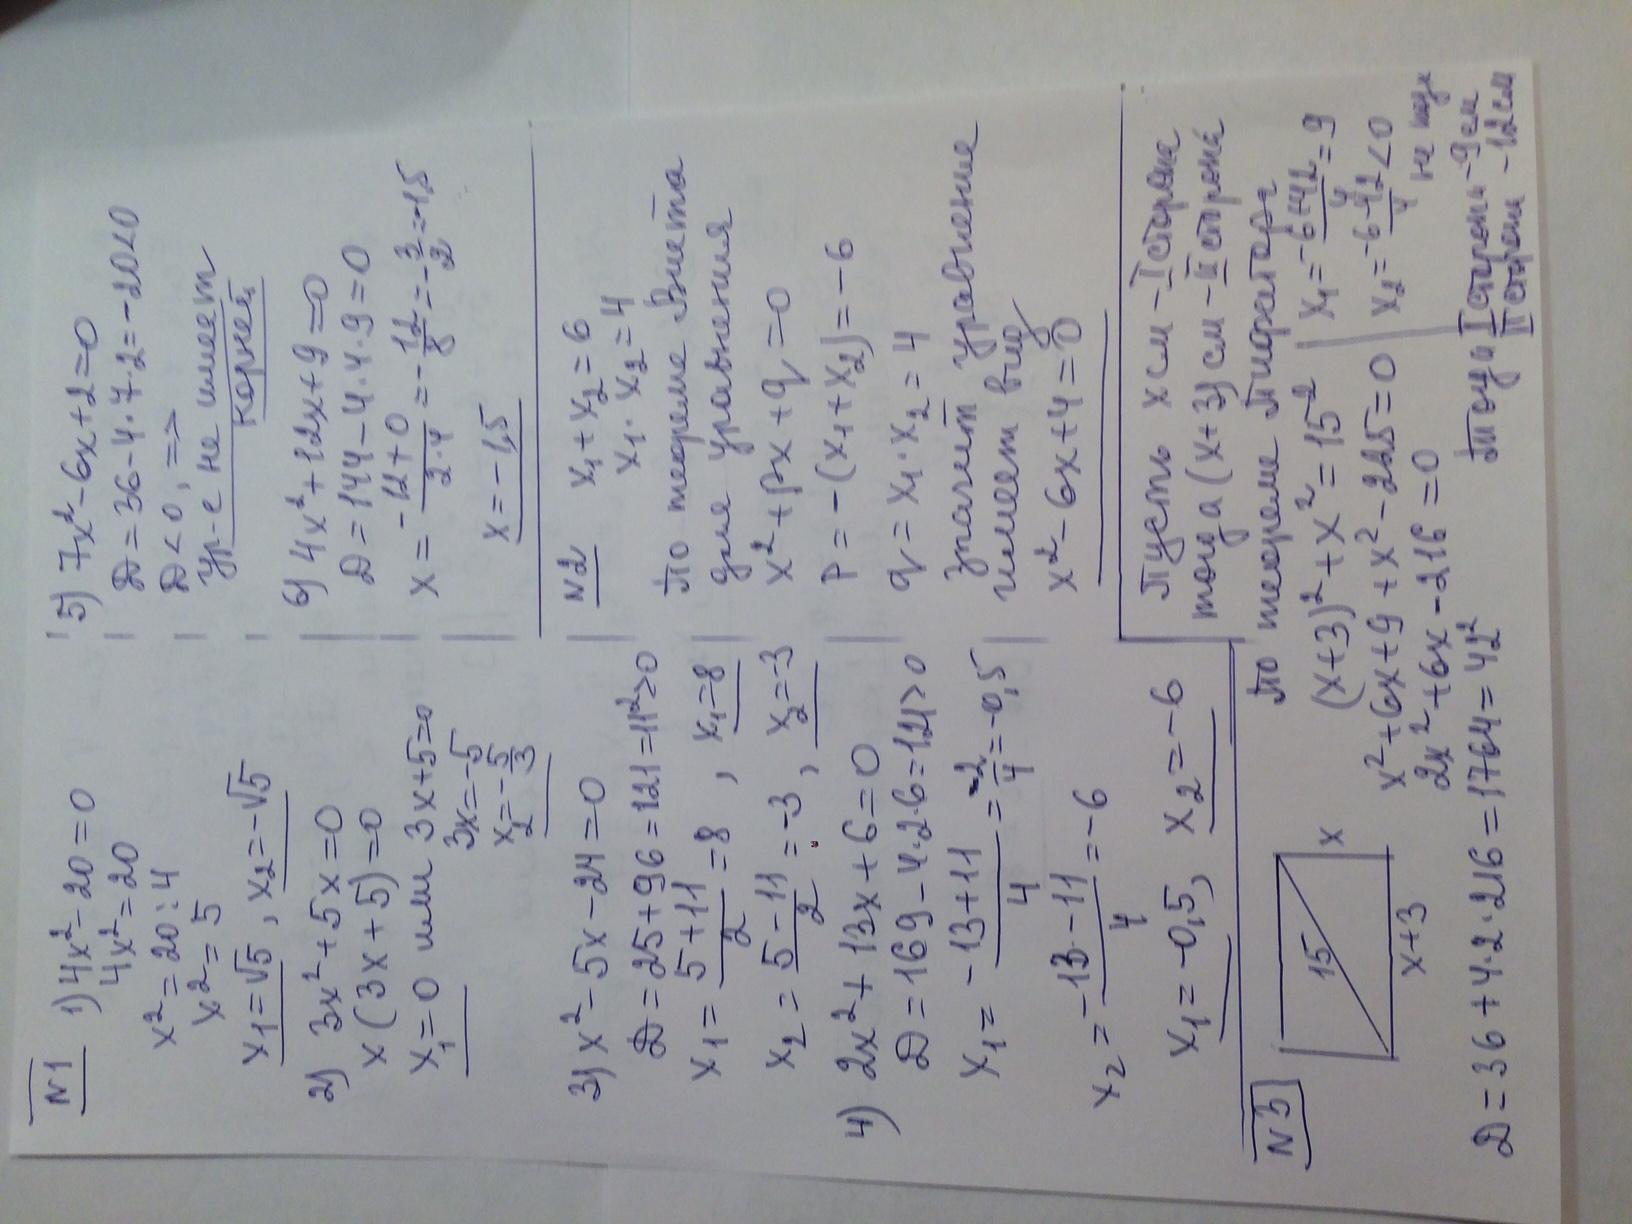 N1
1) 4x²-20=0
4x²=20
x²=20:4
x²=5
x₁=√5, x₂=-√5
2) 3x²+5x=0
x(3x+5)=0
x₁=0 или 3x+5=0
3x=-5
x₂=-5/3
3) x²-5x-24=0
D=25+96=121=11²>0
x₁=(5+11)/2=8, x₁=8
x₂=(5-11)/2=-3, x₂=-3
4) 2x²+13x+6=0
D=169-4·2·6=121>0
x₁=(-13+11)/4=-2/4=-0,5
x₂=(-13-11)/4=-6
x₁=-0,5, x₂=-6
5) 7x²-6x+2=0
D=36-4·7·2=-20<0
D<0, =>
ур-е не имеет
корней
6) 4x²+12x+9=0
D=144-4·4·9=0
x=(-12+0)/(2·4)=-12/8=-3/2=-1,5
x=-1,5
N2 x₁+x₂=6
x₁·x₂=4
По теореме Виета
для уравнения
x²+px+q=0
p=-(x₁+x₂)=-6
q=x₁·x₂=4
значит уравнение
имеет вид
x²-6x+4=0
N3
15
x
x+3
Пусть x см - I сторона
тогда (x+3) см - II сторона
По теореме Пифагора
(x+3)²+x²=15²
x²+6x+9+x²-225=0
2x²+6x-216=0
D=36+4·2·216=1764=42²
x₁=(-6+42)/4=9
x₂=(-6-42)/4<0
не
Тогда I сторона - 9 см
II сторона - 12 см